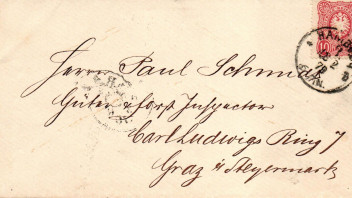 Herrn Paul
Güter & Forst Inspector
Carl Ludwigs Ring 7
Graz i/ Steyermark
10